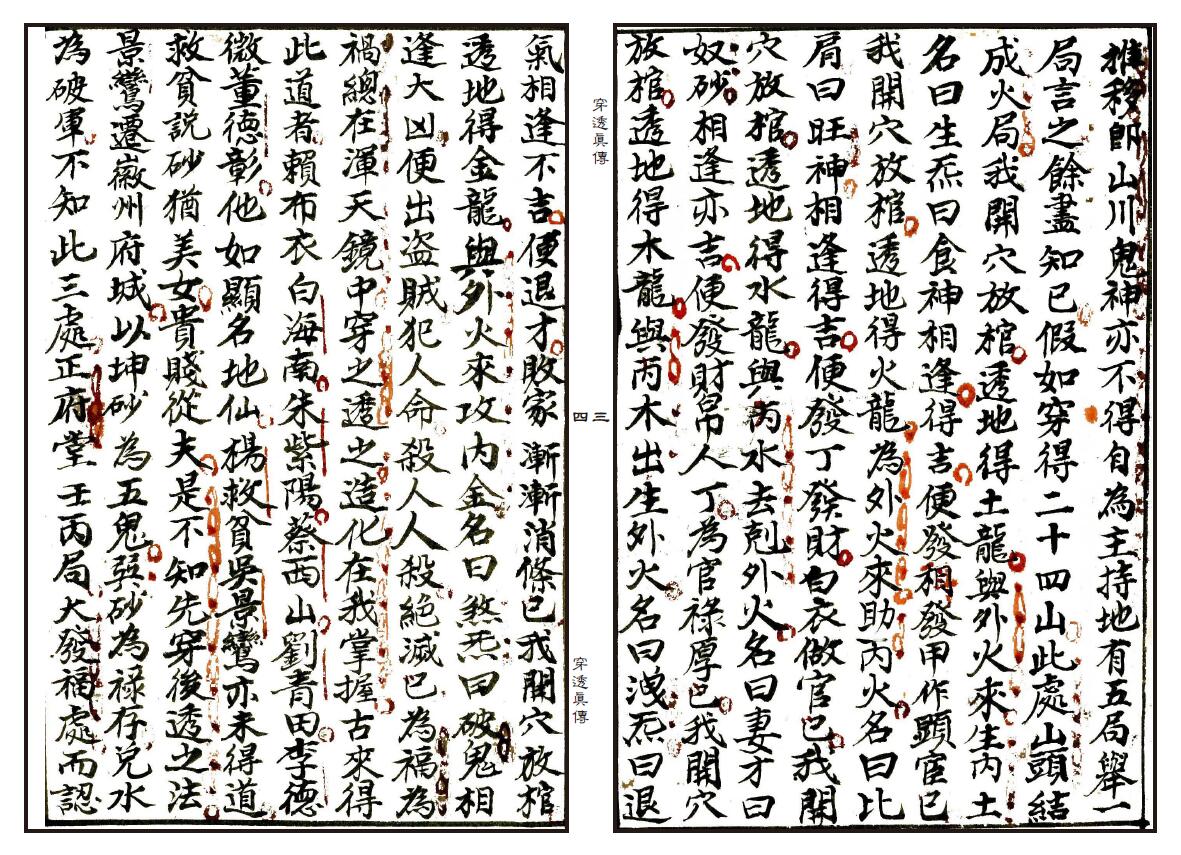 推移即山川鬼神亦不得自為主持地有五局舉一
局言之餘盡知已假如穿得二十四山此處山頭結
成火局我開穴放棺透地得土龍與外火來生內土
名曰生炁曰食神相逢得吉便發相發甲作顕宦已
我開穴放棺透地得火龍為外火來助丙火名曰比
肩曰旺神相逢得吉便發丁發財白衣做官已我開
穴放棺透地得水龍與丙水去剋外火名曰妻才曰
奴砂相逢亦吉便發財帛人丁為官祿厚已我開穴
放棺透地得木龍與丙木出生外火名曰洩炁曰退
穿透眞傳
三
四
穿透眞傳
氣相逢不吉便退才敗家漸漸消條已我開穴放棺
透地得金龍與外火來攻內金名曰煞炁曰破鬼相
逢大凶便出盜賊犯人命殺人人殺絕滅已為福為
禍總在渾天鏡中穿之透之造化在我掌握古來得
此道者賴布衣白海南朱紫陽蔡西山劉青田李德
微董德彰他如顯名地仙楊救貧吳景鸞亦未得道
救貧説砂猶美女貴賤從夫是不知先穿後透之法
景鸞遷徽州府城以坤砂為五鬼巽砂為祿存兌水
為破軍不知此三處正府堂壬丙局大發福處而認